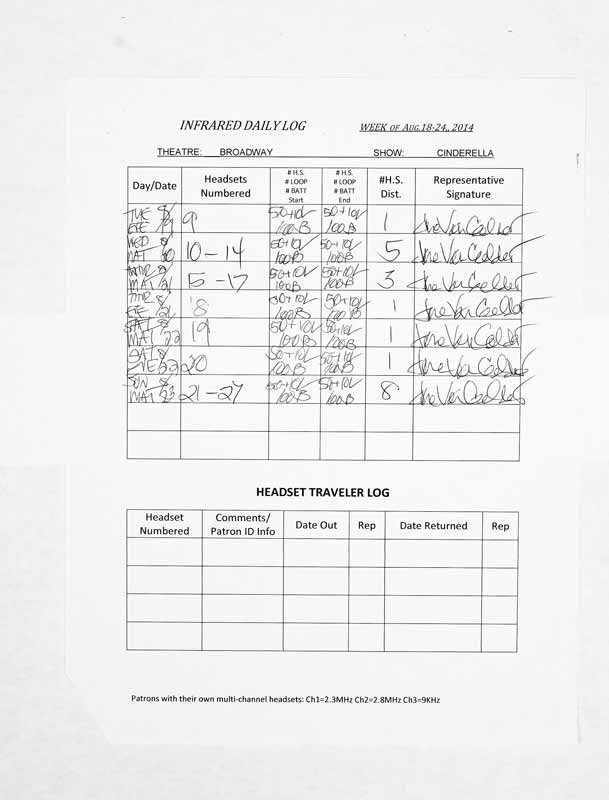 INFRARED DAILY LOG WEEK OF AUG.18-24,, 2014
THEATRE: BROADWAY SHOW: CINDERELLA
Day/Date Headsets Numbered # H.S. # LOOP # BATT Start # H.S. # LOOP # BATT End #H.S. Dist. Representative Signature
TUE 8/19 EVE 9 50+10L 100B 50+10L 100B 1
WED 8/20 MAT 10-14 50+10L 100B 50+10L 100B 5
THUR 8/21 MAT 15-17 50+10L 100B 50+10L 100B 3
THUR 8/21 EVE 18 50+10L 100B 50+10L 100B 1
SAT 8/22 MAT 19 50+10L 100B 50+10L 100B 1
SAT 8/22 EVE 20 50+10L 100B 50+10L 100B 1
SUN 8/23 MAT 21-27 50+10L 100B 50+10L 100B 8
HEADSET TRAVELER LOG
Headset Numbered Comments/ Patron ID Info Date Out Rep Date Returned Rep
Patrons with their own multi-channel headsets: Ch1=2.3MHz Ch2=2.8MHz Ch3=9KHz